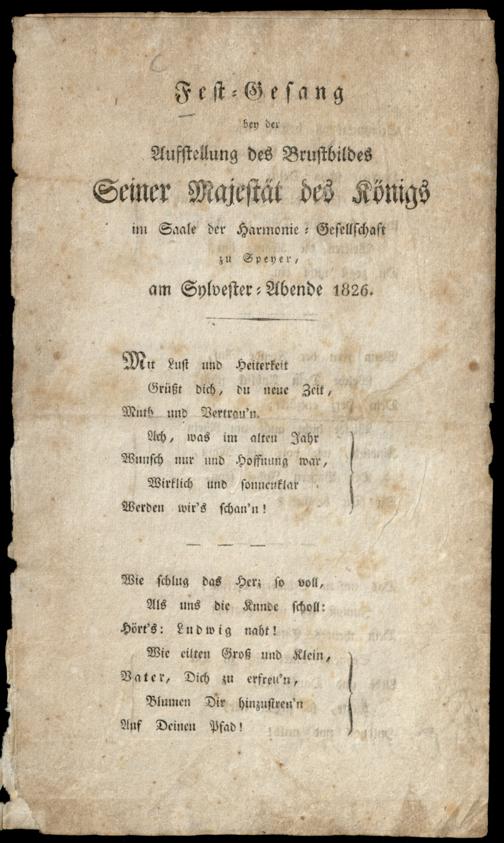 Fest-Gesang
bey der
Aufstellung des Brustbildes
Seiner Majestät des Königs
im Saale der Harmonie-Gesellschaft
zu Speyer,
am Sylvester-Abende 1826.
Mit Lust und Heiterkeit
Grüßt dich, du neue Zeit,
Muth und Vertrau'n.
Ach, was im alten Jahr
Wunsch nur und Hoffnung war,
Wirklich und sonnenklar
Werden wir's schau'n!
Wie schlug das Herz so voll,
Als uns die Kunde scholl:
Hört's: Ludwig naht!
Wie eilten Groß und Klein,
Vater, Dich zu erfreu'n,
Blumen Dir hinzustreu'n
Auf Deinen Pfad!